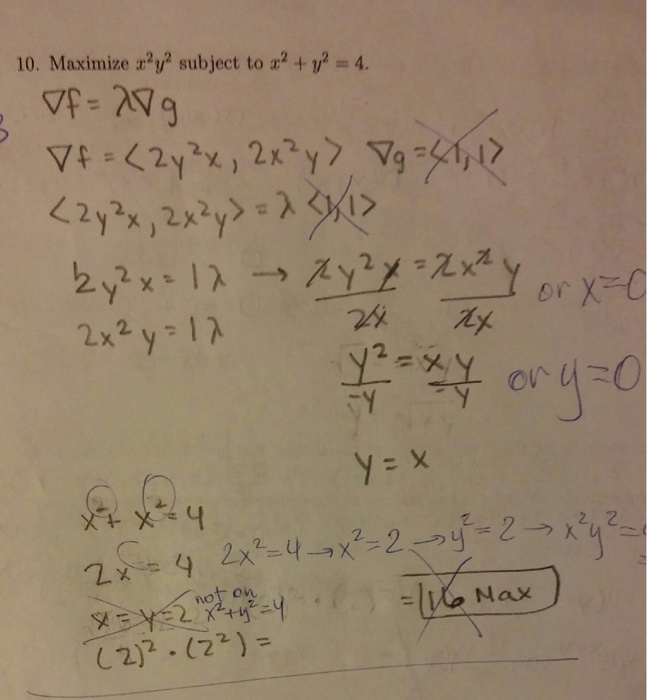 10. Maximize x²y² subject to x² + y² = 4.
∇f = λ∇g
∇f = <2y²x, 2x²y> ∇g = <1,1>
<2y²x, 2x²y> = λ <1,1>
2y²x = 1λ → 2y²x/2x = 2x²y/2x or x=0
2x²y = 1λ
y²/-y = xy/-y or y=0
y = x
x² + x² = 4
2x = 4 2x²=4 → x²=2 → y²=2 → x²y²=4
x = y = 2 not on x²+y²=4
= 16 Max
(2)² · (2²) =